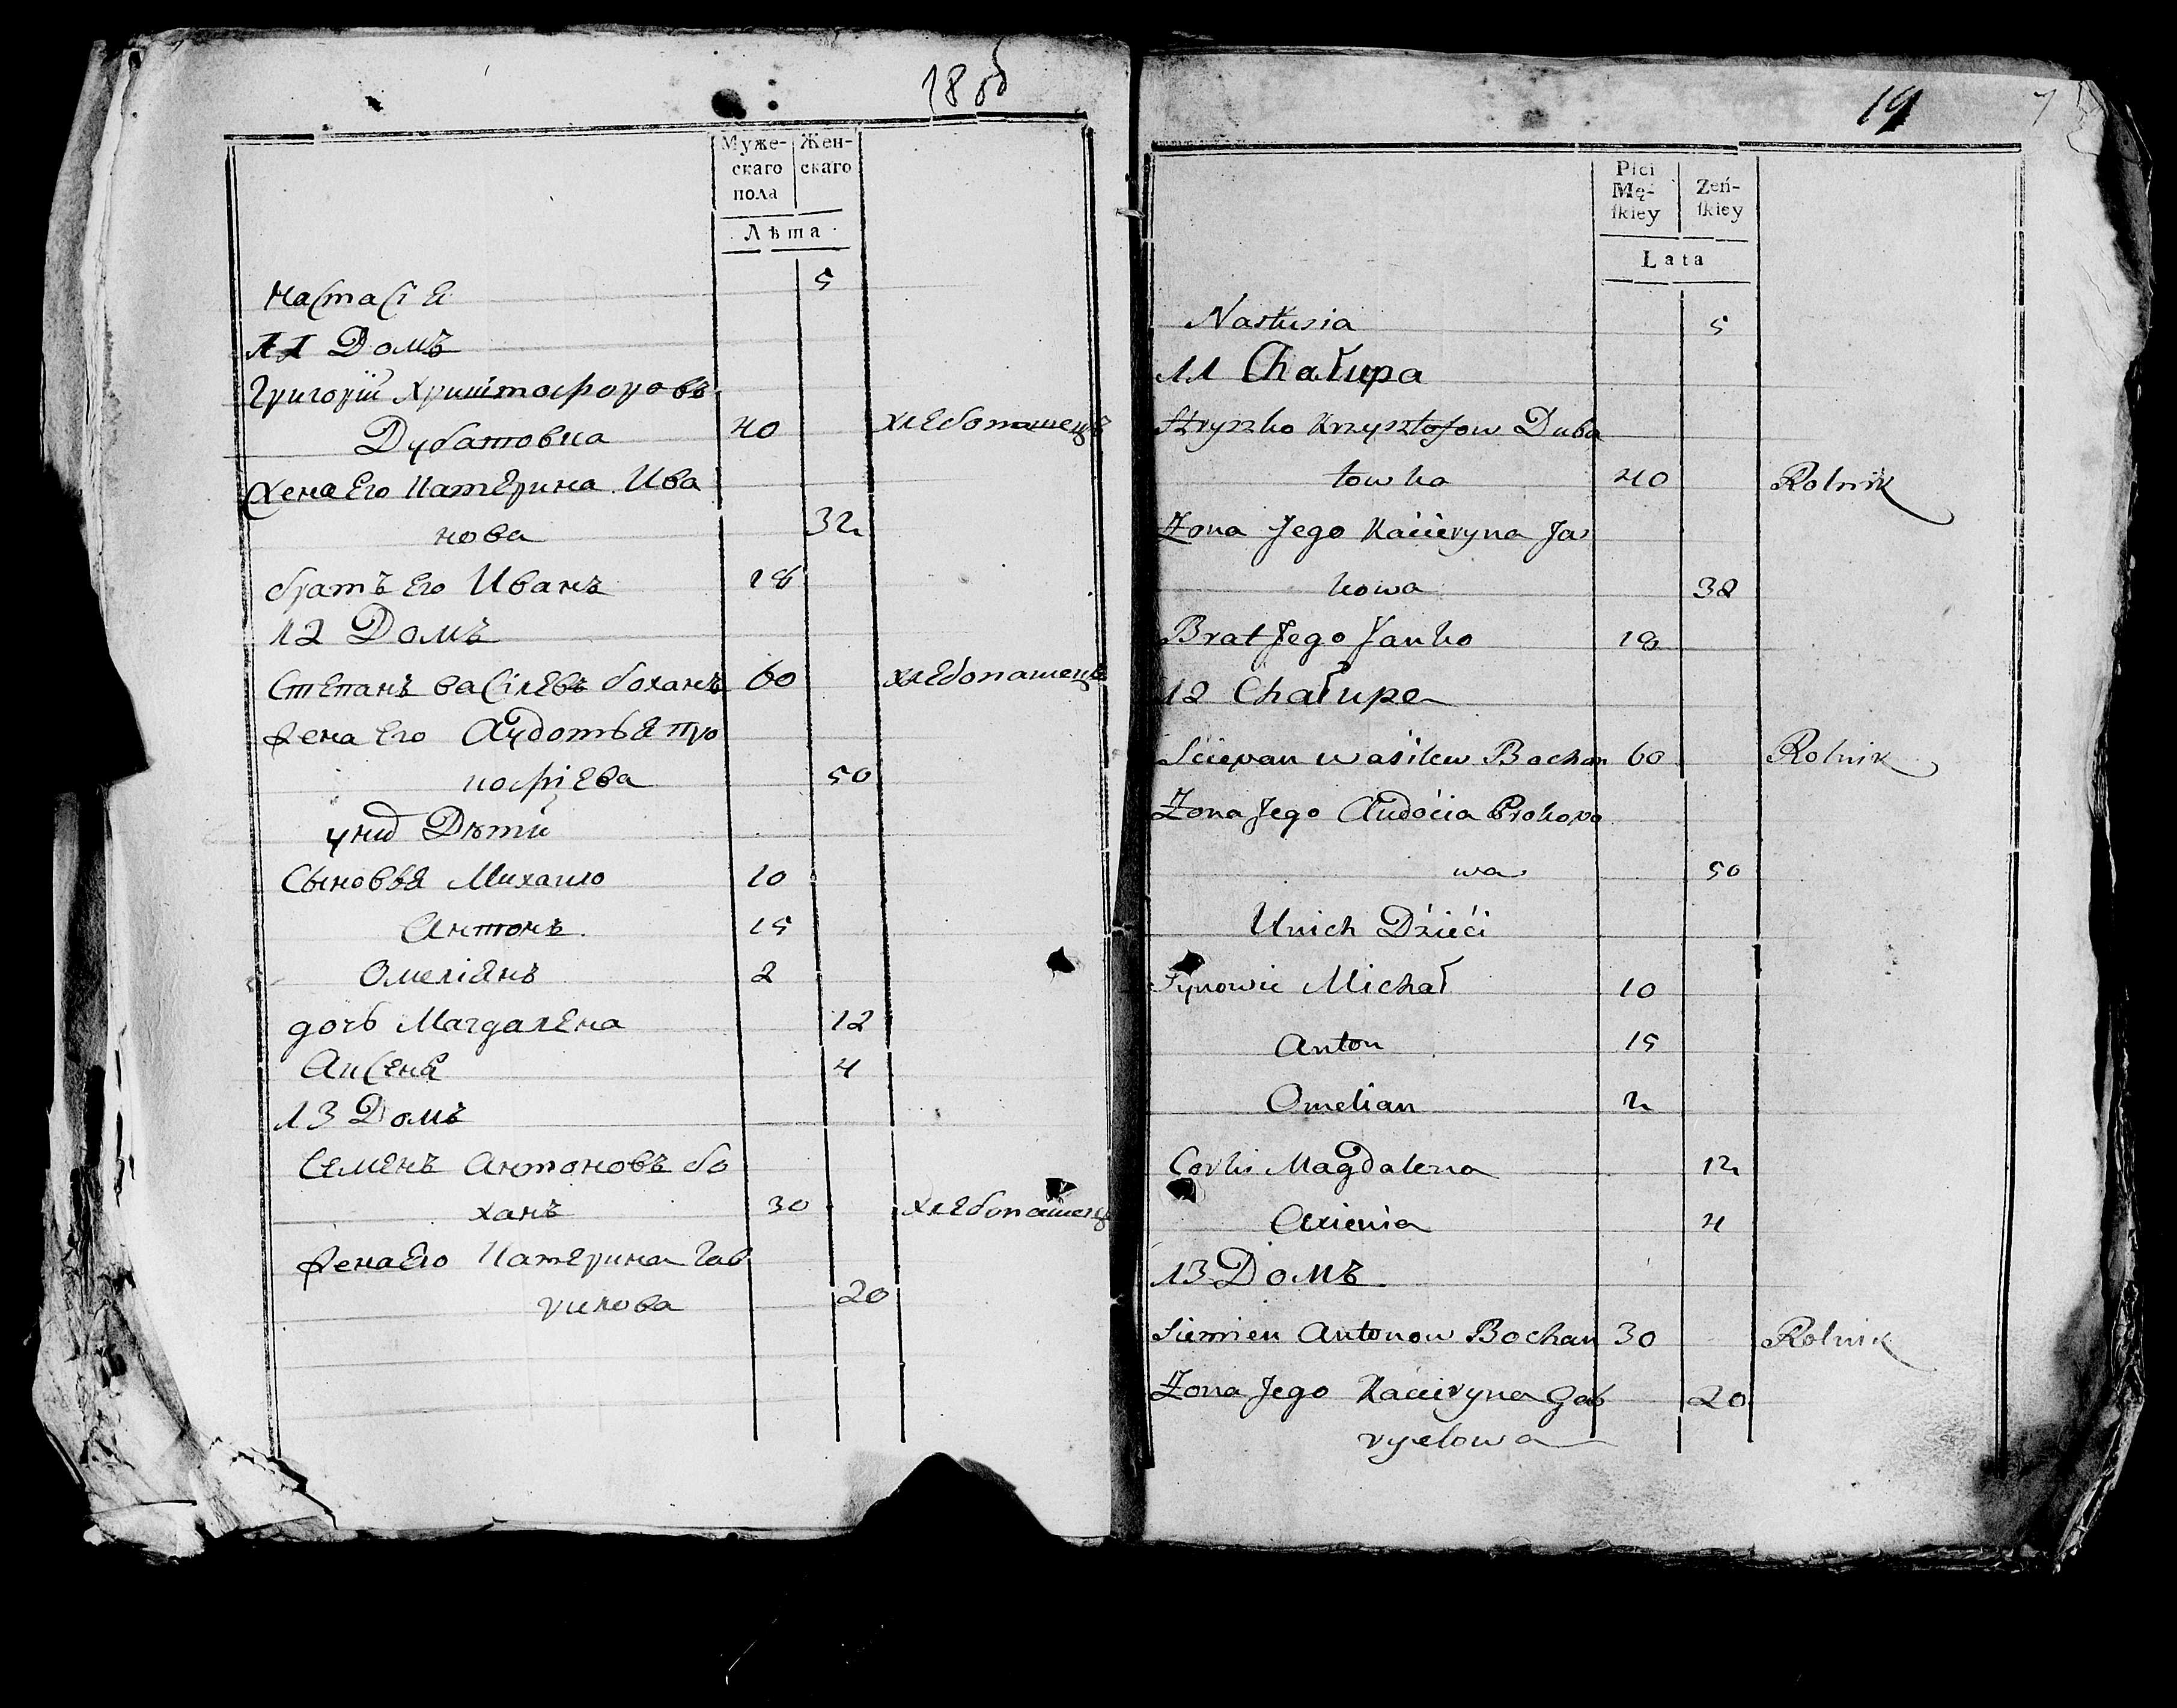 18 об
Муже-
скаго
пола
Жен-
скаго
Лѣта
Настасіа 5
11 Домъ
Григорій Хриштофоровъ
Дубатовка 40 хлебопашецъ
Жена Его Катерина Ива
нова 32
братъ Его Иванъ 18
12 Домъ
Степанъ васілевъ боханъ 60 хлебопашецъ
жена Его Аудотья Про
кофіева 50
у них Дѣти
Сыновья Михаило 10
Антонъ 15
Омеліянъ 2
дочь Магдалена 12
Аксеня 4
13 Домъ
Семенъ Антоновъ бо
ханъ 30 хлебопашецъ
жена Его Катерина Гав
рилова 20
19
7
Płci
Mę-
ſkiey
Zeń-
ſkiey
Lata
Nastusia 5
11 Chałupa
Hryszko Krzysztofow Duba
towka 40 Rolnik
Żona Jego Kacieryna Ja
kowa 32
Brat Jego Janko 18
12 Chałupa
Sciepan Wasilew Bochan 60 Rolnik
Żona Jego Audocia Prokopo
wa 50
Unich Dzieci
Synowie Michał 10
Anton 15
Omelian 2
Corki Magdalena 12
Axienia 4
13 Домъ
Siemien Antonow Bochan 30 Rolnik
Żona Jego Kacieryna Gab 20
ryelowa